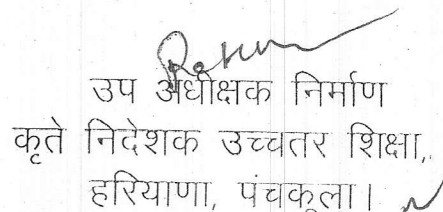 उप अधीक्षक निर्माण
कृते निदेशक उच्चतर शिक्षा,
हरियाणा, पंचकूला।